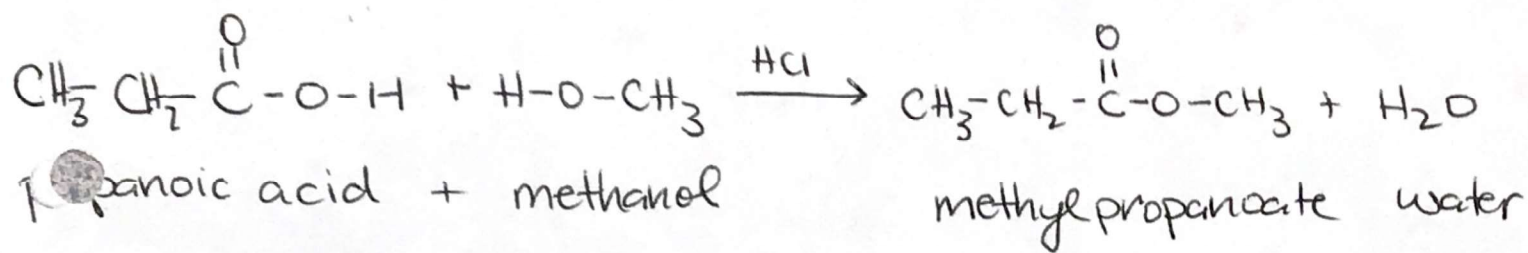 O O
CH3-CH2-C-O-H + H-O-CH3 HCl → CH3-CH2-C-O-CH3 + H2O
acid + methanol methylpropanoate water